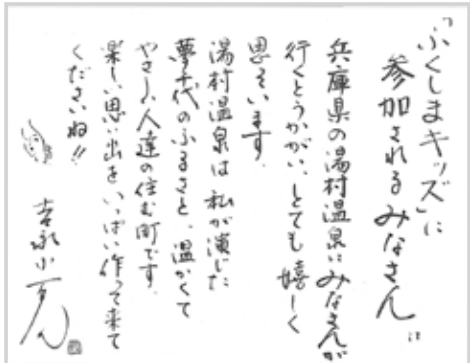 「ふくしまキッズ」に
参加されるみなさんに
兵庫県の湯村温泉にみなさんが
行くとうかがい、とても嬉しく
思っています。
湯村温泉は 私が演じた
夢千代のふるさと、温かくて
やさしい人達の住む町です。
楽しい思い出をいっぱい作って来て
くださいね!!
吉永小百合